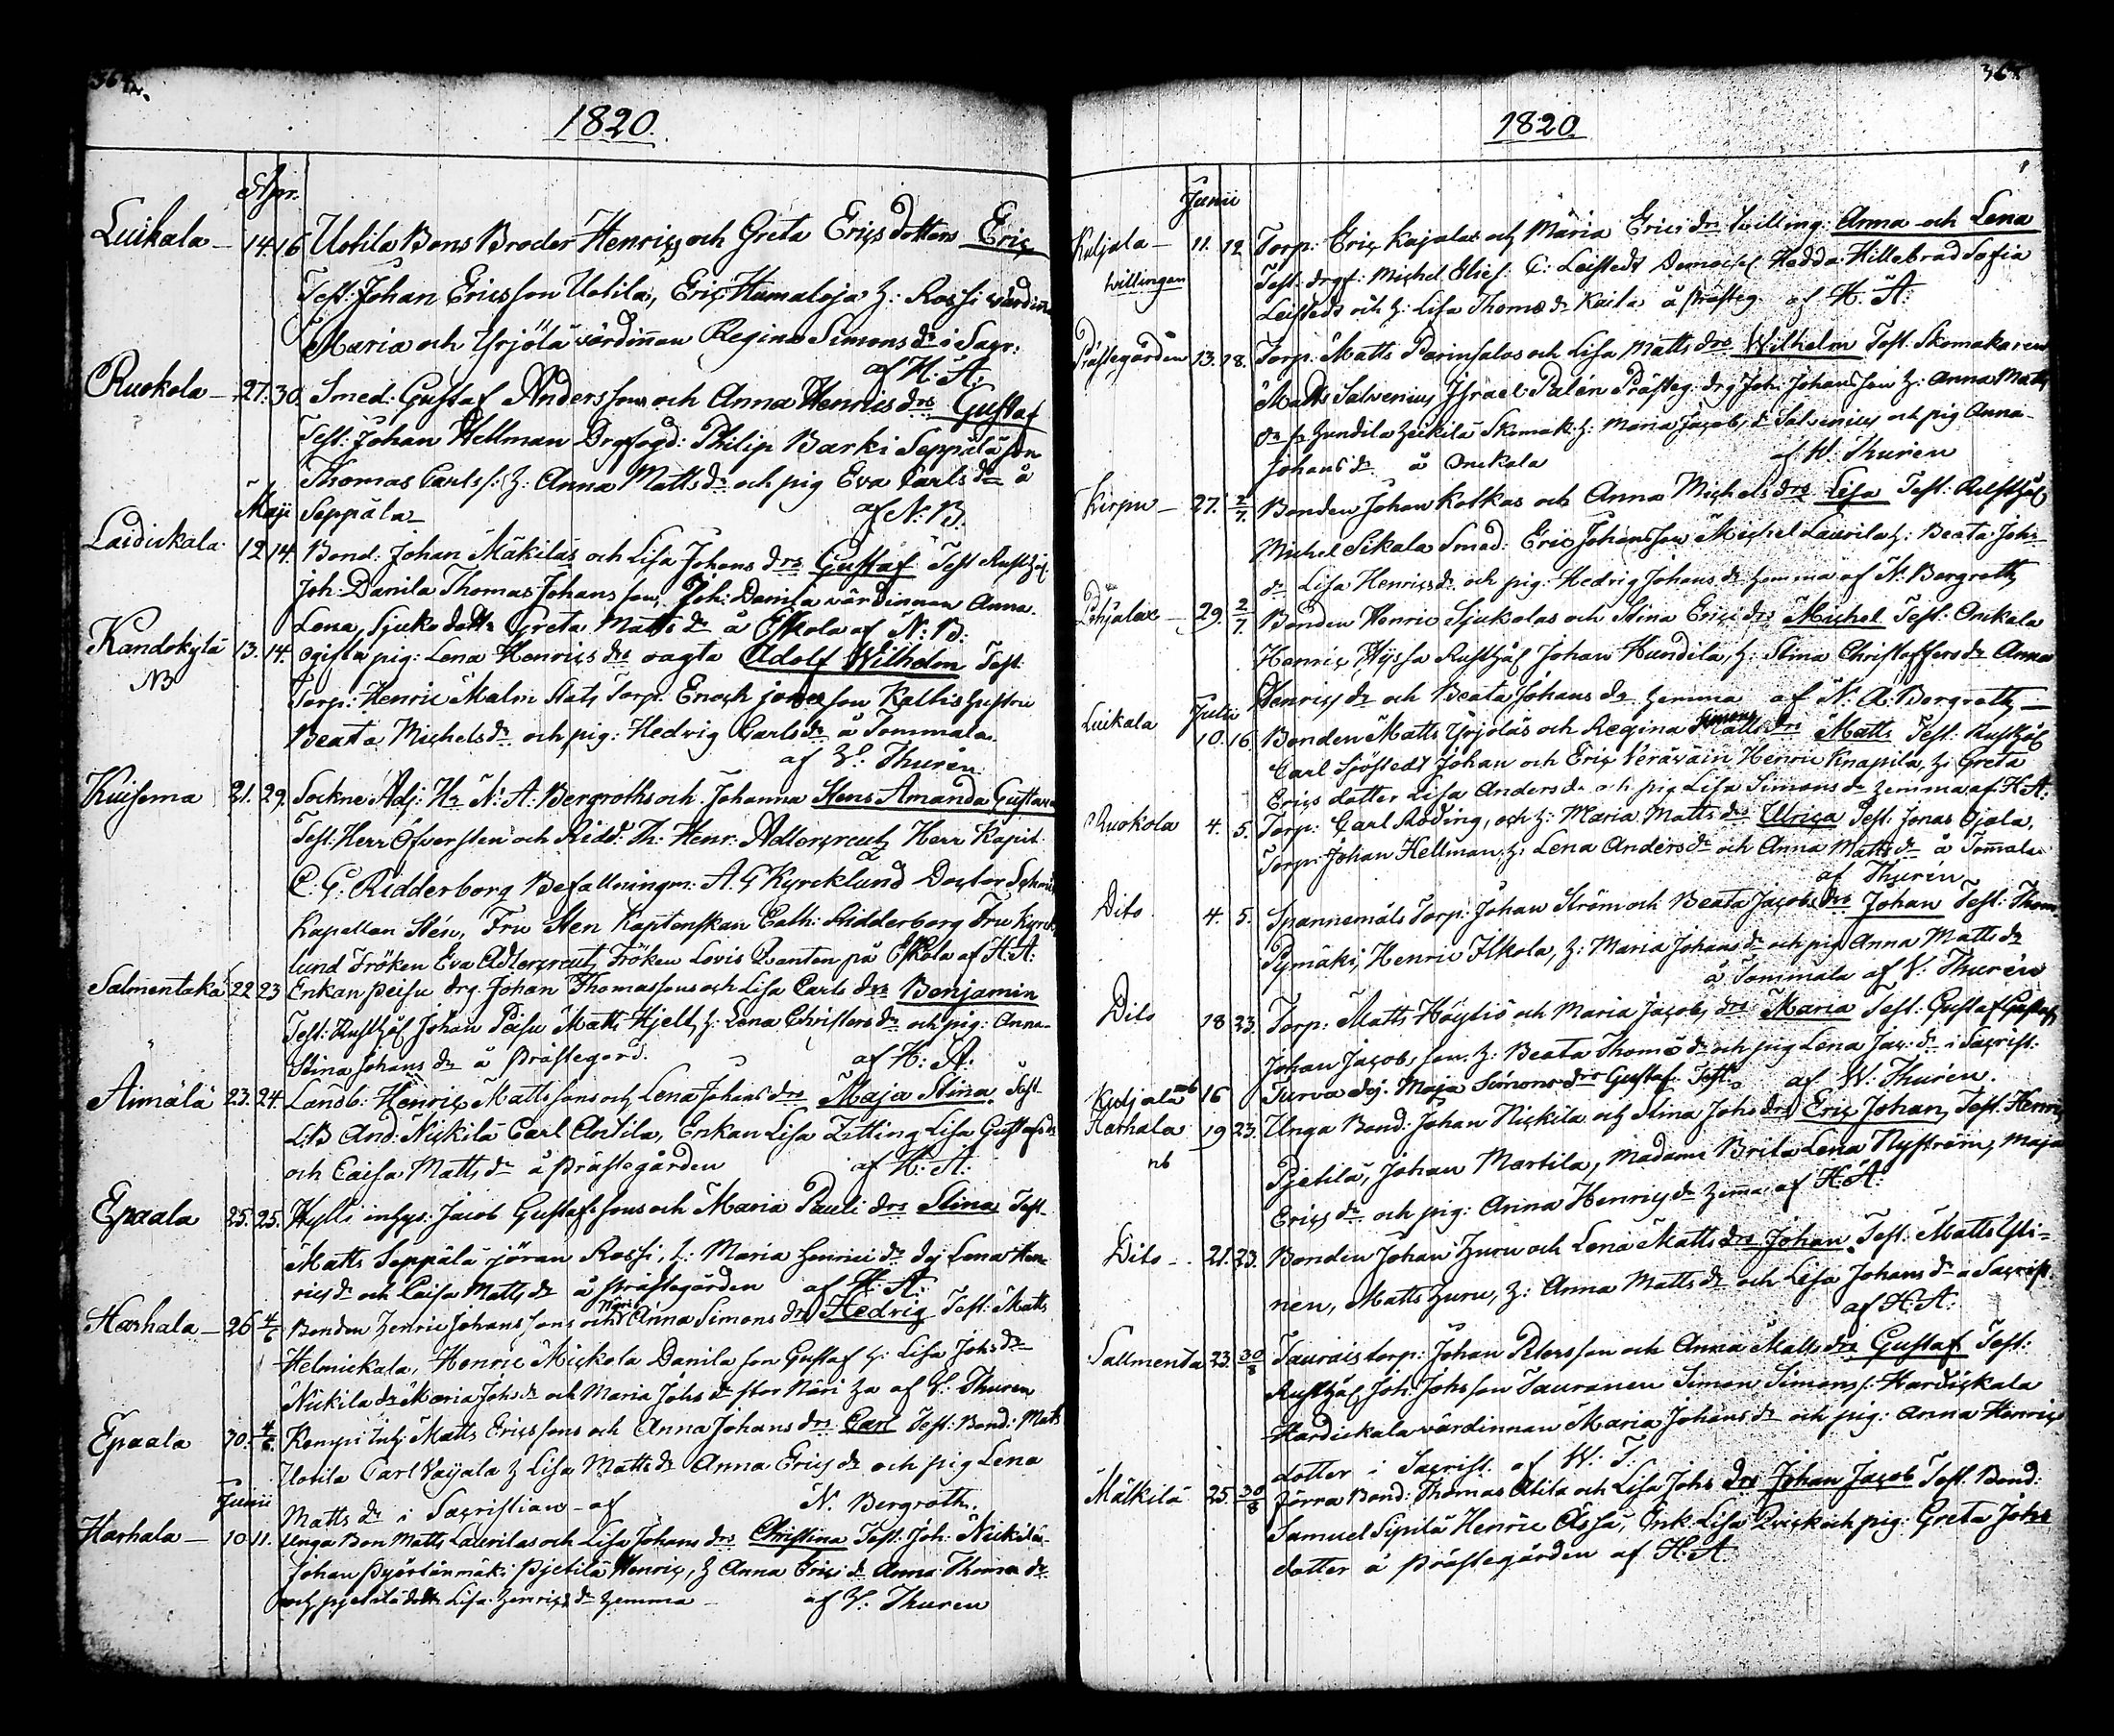 364.
1820.
Apr.
Luikala — 14. 16 Uotila Bons Broder Henrics och Greta Erics dotters Eric
Test: Johan Ericsson Uotila, Eric Humaloja h: Rossi värdin
Maria och Yrjölä värdinnan Regina Simons dr i Sacr:
af H: A:
Ruokola — 27. 30. Smed: Gustaf Andersson och Anna Henrics drs Gustaf
Test: Johan Hellman Drgfogd: Philip Barki Seppälä son
Thomas Carls s: h: Anna Matts dr och pig Eva Carls dr å
Maji Seppälä — af N: B.
Laidickala 12 14. Bond. Johan Mäkiläs och Lisa Johans drs Gustaf Test Rusth
Joh: Danila Thomas Johansson, Joh: Danila värdinnan Anna
Lena, Sjuko dottr Greta Matts dr å Eskola af N: B:
Kandokylä 13. 14. ogifta pig: Lena Henrics drs oagta Adolf Wilhelm Test
NB Torp: Henric Malm Torp. Enoch son Kallis hustru
Beata Michels dr och pig: Hedvig Carls dr å Tommala.
af V: Thurén
Kuisema 21. 29. Sockne Adj: Hr N: A: Bergroths och Johanna Stens Amanda Gustava
Test: Herr Öfversten och Ridd: Th: Henr: Adlercreutz Herr Kapit
C: G: Ridderborg Befallningm: A: G Kyrcklund Doctor
Kapellan Stén, Fru Sten Kaptenskan Cath: Ridderborg Fru Kyrck
lund Fröken Eva Adlercreutz Fröken Lovis Qvanten på Eskola af H: A:
Salmentaka 22 23 Enkan Peisu drg. Johan Thomassons och Lisa Carls drs Benjamin
Test: Rusth Johan Peisu Matts Hjelt, h: Lena Christers dr och pig: Anna
Stina Johans dr å Prästegård. af H: A:
Äimälä 23. 24. Landb. Henric Mattssons och Lena Johans drs Maja Stina Test
LB And: Nickilä Carl Antila, Enkan Lisa Zitting Lisa Gustafs dr
och Caisa Matts dr å Prästegården af H: A:
Epaala 25. 25. Hylli inhys: Jacob Gustafssons och Maria Pauli drs Stina Test
Matts Seppälä jöran Rossi, h: Maria Henrics dr dej Lena Hen
rics dr och Caisa Matts dr å Prästegården af H: A:
Harhala — 26 4/6 Bonden Henric Johanssons och Anna Simons drs Hedvig Test: Matts
Helmickala, Henric Mickola Danila son Gustaf h: Lisa Johs dr
Nickila dr Maria Johs dr och Maria Johs dr stor Näri af V: Thuren
Epaala 30. 4/6. Kempi Inh: Matts Ericssons och Anna Johans drs Carl Test: Bond: Matts
Uotila Carl Vaijala h Lisa Matts dr Anna Erics dr och pig Lena
Junii Matts dr i Sacristian — af N. Bergroth.
Harhala — 10 11. Unga Bon Matts Laurilas och Lisa Johans drs Christina Test: Joh: Nickilä
Johan Pyörtänmäki Pjetilä Henric, h Anna Erics dr Anna Thomæ dr
och pjetilä dottr Lisa Henrics dr hemma — af V: Thuren
1820
Junii
Kuljala — 11. 12 Torp: Eric Kajalas och Maria Erics drs tvilling: Anna och Lena
tvillingar Test: drgf: Michel Elies: C: Leistedt Demoisel Hedda Hillebrad Sofia
Leistedt och h: Lisa Thomæ dr Kaila å Prästeg: af H. A:
Prästegården 13. 18. Torp: Matts Parinsalos och Lisa Matts drs Wilhelm Test. Skomakaren
Matts Salvenius Israel Palén Prästeg. drg Joh: Johansson h: Anna Matts
dr Skomak: h: Maria Jacobs dr Salvenius och pig Anna
Johans dr å Onkala af W: Thurén
Kirpu — 27. 2/7. Bonden Johan Kotkas och Anna Michels drs Lisa Test:
Michel Sikala Smed: Eric Johansson Michel Laurila h: Beata Johs
dr Lisa Henrics dr och pig: Hedvig Johans dr hemma af N: Bergroth
Pohjalax — 29. 2/7. Bonden Henric Sjukolas och Stina Erics drs Michel Test: Onkala
Henric Hyssa Rusth Johan Hundila, h: Stina Christoffers dr Anna
Henrics dr och Beata Johans dr hemma af N: A: Bergroth —
Luikala Julii 10. 16. Bonden Matts Yrjöläs och Regina Simons drs Matts Test: Rusth
Carl Sjöstedt Johan och Eric Veräväin Henric Knapila, h: Greta
Erics dotter Lisa Anders dr och pig Lisa Simons dr hemma af H: A:
Ruokola 4. 5. Torp: Carl Roding, och h: Maria Matts drs Ulrica Test: Jonas Ojala,
Torp: Johan Hellman, h: Lena Anders dr och Anna Matts dr å Tomala
af Thurén
Dito. 4. 5. Spannemäls Torp: Johan Ström och Beata Jacobs drs Johan Test: Thom
Pymäki, Henric Ilkola, h: Maria Johans dr och pig Anna Matts dr
å Tommala af V: Thurén
Dito 18 23. Torp: Matts Höytiö och Maria Jacobs drs Maria Test: Gustaf Gustafs
Johan Jacobsson. h: Beata Thomæ dr och pig Lena Jac: dr i Sacrist:
Kuljala nb 16 Turva dej. Maja Simons drs Gustaf Test. af W: Thurén.
Harhala 19 23. Unga Bond: Johan Nickilä och Stina Johs drs Eric Johan, Test: Henric
nb Pjetilä, Johan Martila, Madame Brita Lena Nyström, Maja
Erics dr och pig: Anna Henrics dr hema af H: A:
Dito — 21. 23. Bonden Johan Huru och Lena Matts drs Johan, Test: Matts Yli=
nen, Matts Huru, h: Anna Matts dr och Lisa Johans dr a Sacrist
af H: A:
Sallmenta 23. 30/8 Taurais torp: Johan Petersson och Anna Matts drs Gustaf Test:
Rusth Joh: Johsson Tauranen Simon Simons s: Hardickala
Hardickala värdinnan Maria Johans dr och pig: Anna Henrics
dotter i Sacrist. af W: T:
Mälkilä 25. 30/8 Jörra Bond: Thomas Atila och Lisa Johs drs Johan Jacob Test. Bond:
Samuel Sipilä Henric Ässä, Enk: Lisa Qvick och pig: Greta Johs
dotter å Prästegården af H: A